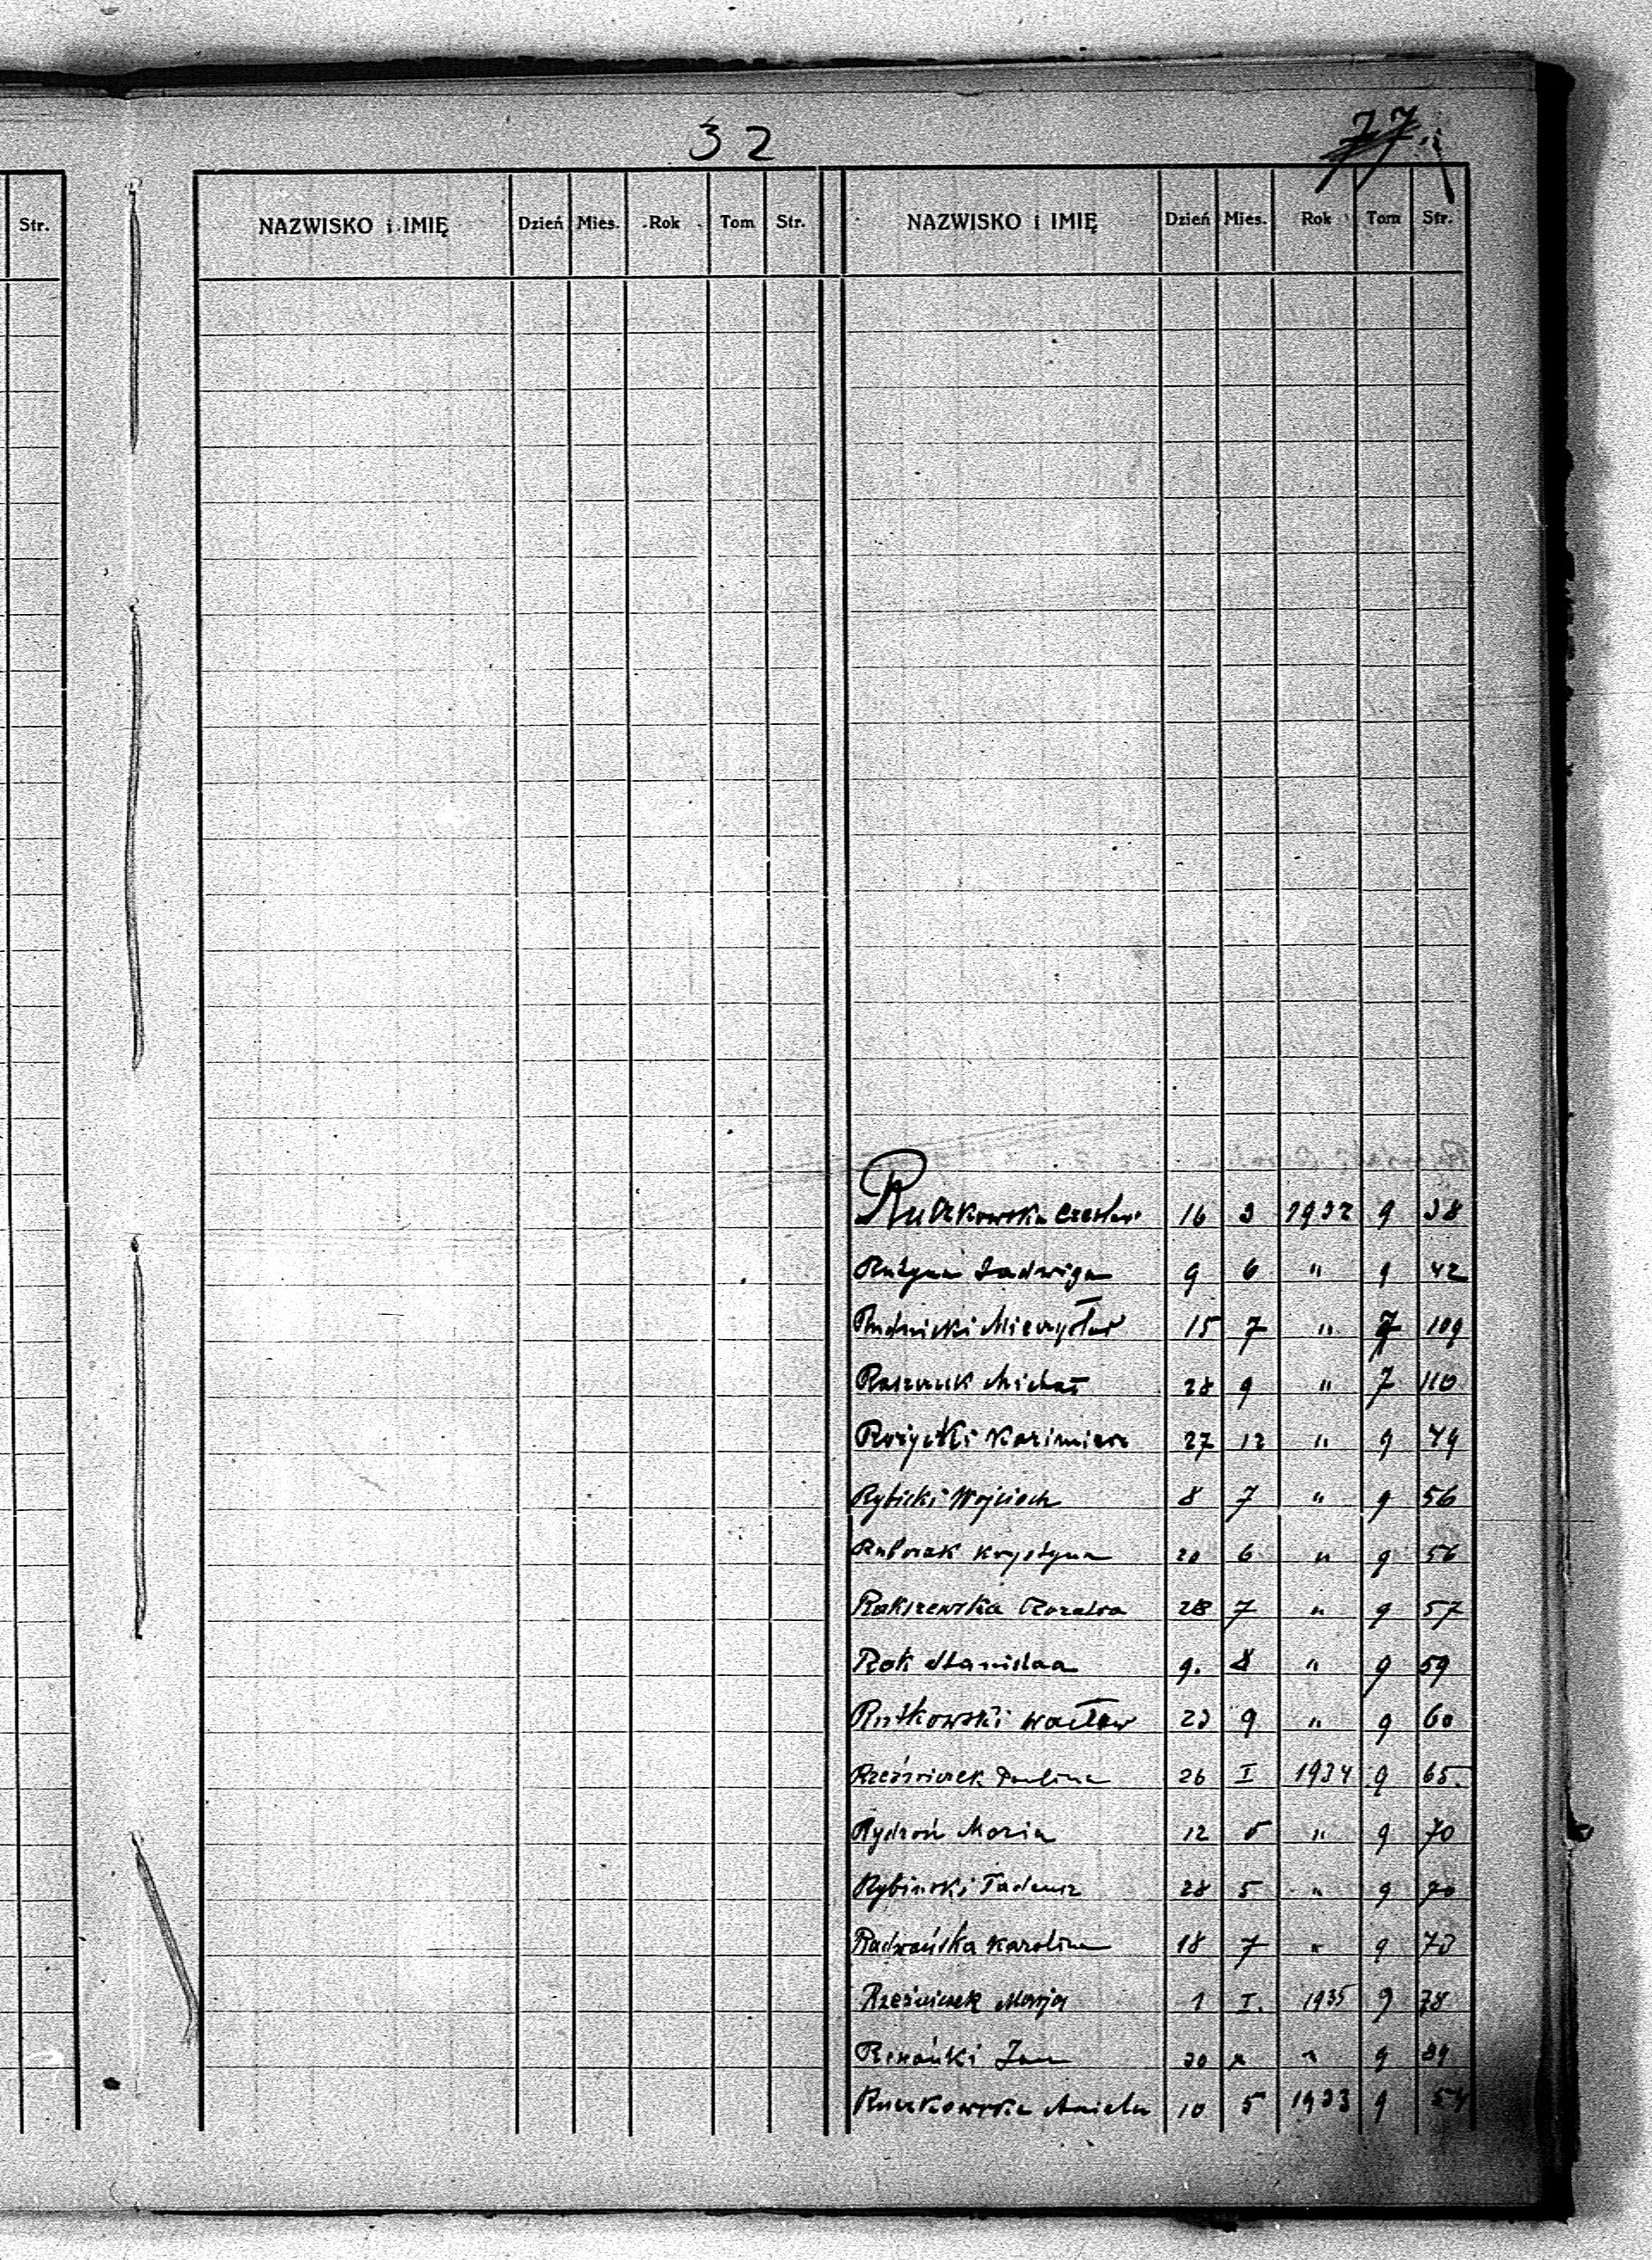 32
77
Str.
NAZWISKO i IMIĘ Dzień Mies. Rok Tom Str. NAZWISKO i IMIĘ Dzień Mies. Rok Tom Str.
16 3 1932 9 38
Jadwiga 9 6 " 9 42
Rudnicki Mieczysław 15 7 " 7 109
Michał 28 9 " 7 110
Rożycki Kazimierz 27 12 " 9 49
Rybicki Wojciech 8 7 " 9 56
Krystyna 20 6 " 9 56
Rakszewska Rozalia 28 7 " 9 57
Rok 9. 8 " 9 59
Rutkowski Wacław 23 9 " 9 60
Paulina 26 I 1934 9 65.
Rydzoń Maria 12 5 " 9 70
Rybiński Tadeusz 28 5 " 9 70
Radwańska Karolina 18 7 " 9 73
Marja 1 I. 1935 9 78
Jan " 9
Ruczkowska Aniela 10 5 1933 9 54